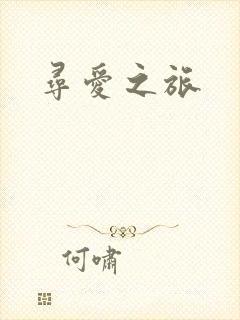 尋愛之旅
何嘯